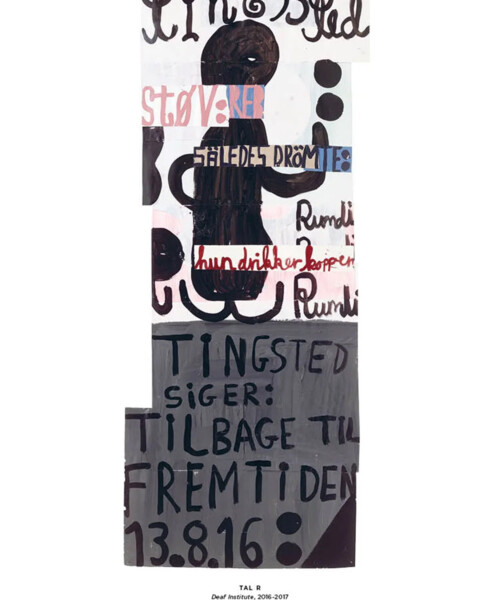 Tingsted
STØV:RER
SÅLEDES DRÖMTE:
Rumdi
hun drikker koppen
Rumdi
TINGSTED
SIGER:
TILBAGE TIL
FREMTIDEN
13.8.16:
TAL R
Deaf Institute, 2016-2017